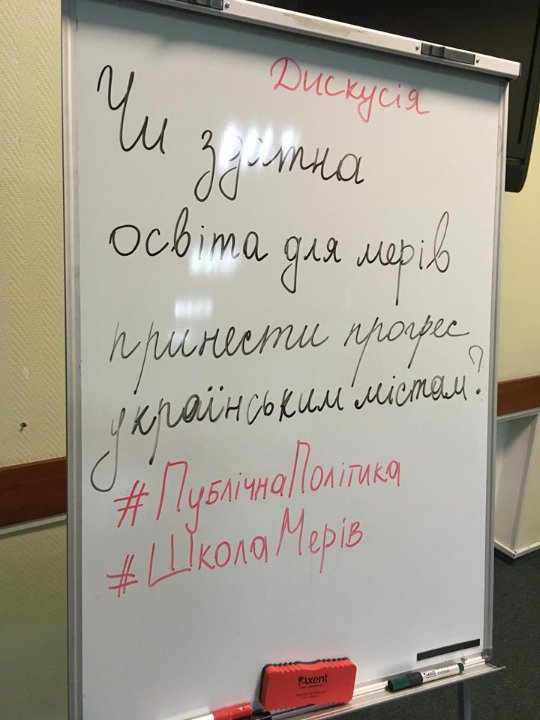 Дискусія
Чи здатна
освіта для мерів
принести прогрес
українським містам?
#ПублічнаПолітика
#ШколаМерів
Axent